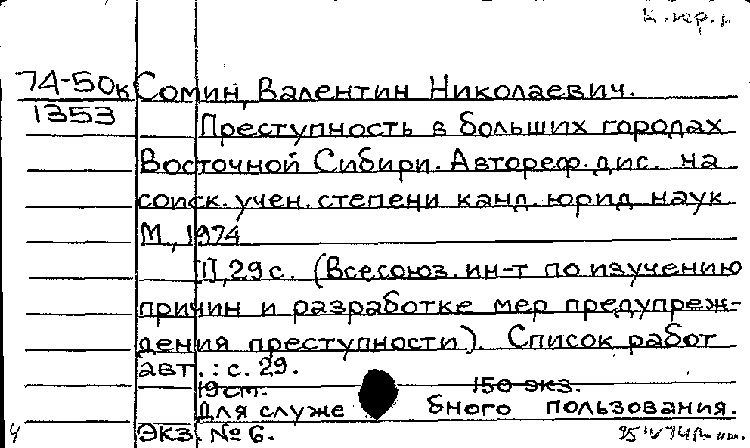 74-50к Сомин, Валентин Николаевич.
1353 Преступность в больших городах
Восточной Сибири. Автореф. дис. на
соиск. учен. степени канд. юрид. наук
М., 1974
[I], 29 с. (Всесоюз. ин-т по изучению
причин и разработке мер предупреж-
дения преступности). Список работ
авт.: с. 29.
19 см. 150 экз.
Для служебного пользования.
Экз. № 6.